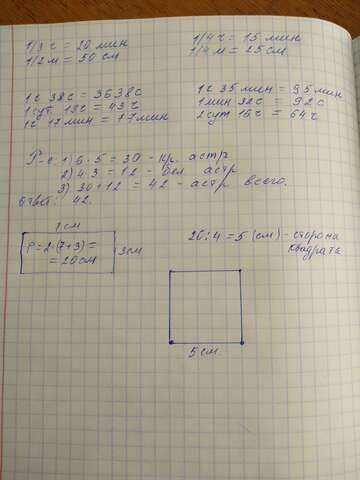 1/3 ч = 20 мин
1/4 ч = 15 мин
1/2 м = 50 см
1/4 м = 25 см
1ч 38с = 3638с
1ч 35 мин = 95 мин
1сут. 19ч = 43ч
1мин 32с = 92с
1ч 17 мин = 77мин
2сут 16ч = 64ч
Р-е: 1) 6·5 = 30 - кр. астр
2) 4·3 = 12 - бел. астр
3) 30+12 = 42 - астр всего.
Ответ: 42.
7см
P=2·(7+3)=
= 20см
3см
20:4=5 (см) - сторона
квадрата
5см